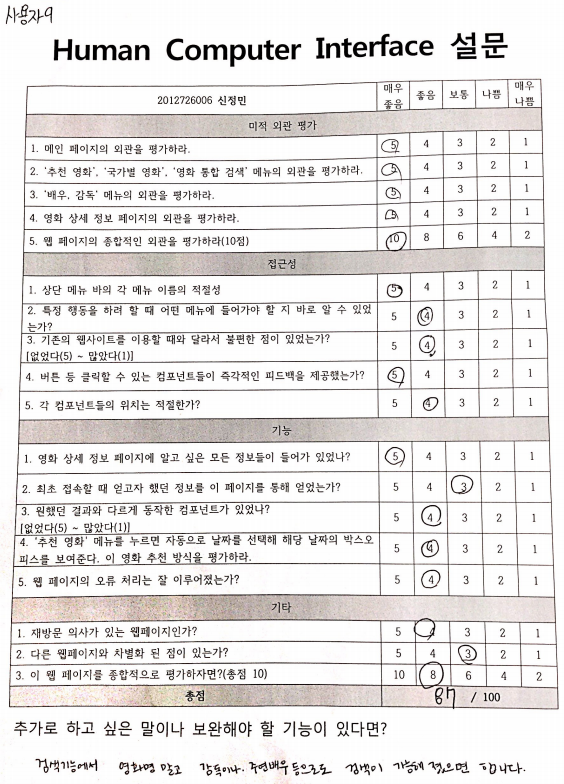 사용자9
Human Computer Interface 설문
2012726006 신정민 매우 좋음 좋음 보통 나쁨 매우 나쁨
미적 외관 평가
1. 메인 페이지의 외관을 평가하라. 5 4 3 2 1
2. '추천 영화', '국가별 영화', '영화 통합 검색' 메뉴의 외관을 평가하라. 5 4 3 2 1
3. '배우, 감독' 메뉴의 외관을 평가하라. 5 4 3 2 1
4. 영화 상세 정보 페이지의 외관을 평가하라. 5 4 3 2 1
5. 웹 페이지의 종합적인 외관을 평가하라(10점) 10 8 6 4 2
접근성
1. 상단 메뉴 바의 각 메뉴 이름의 적절성 5 4 3 2 1
2. 특정 행동을 하려 할 때 어떤 메뉴에 들어가야 할 지 바로 알 수 있었
는가? 5 4 3 2 1
3. 기존의 웹사이트를 이용할 때와 달라서 불편한 점이 있었는가?
[없었다(5) ~ 많았다(1)] 5 4 3 2 1
4. 버튼 등 클릭할 수 있는 컴포넌트들이 즉각적인 피드백을 제공했는가? 5 4 3 2 1
5. 각 컴포넌트들의 위치는 적절한가? 5 4 3 2 1
기능
1. 영화 상세 정보 페이지에 알고 싶은 모든 정보들이 들어가 있었나? 5 4 3 2 1
2. 최초 접속할 때 얻고자 했던 정보를 이 페이지를 통해 얻었는가? 5 4 3 2 1
3. 원했던 결과와 다르게 동작한 컴포넌트가 있었나?
[없었다(5) ~ 많았다(1)] 5 4 3 2 1
4. '추천 영화' 메뉴를 누르면 자동으로 날짜를 선택해 해당 날짜의 박스오
피스를 보여준다. 이 영화 추천 방식을 평가하라. 5 4 3 2 1
5. 웹 페이지의 오류 처리는 잘 이루어졌는가? 5 4 3 2 1
기타
1. 재방문 의사가 있는 웹페이지인가? 5 4 3 2 1
2. 다른 웹페이지와 차별화 된 점이 있는가? 5 4 3 2 1
3. 이 웹 페이지를 종합적으로 평가하자면?(총점 10) 10 8 6 4 2
총점 87 / 100
추가로 하고 싶은 말이나 보완해야 할 기능이 있다면?
검색기능에서 영화명 말고 감독이나. 주연배우 등으로도 검색이 가능해 졌으면 합니다.